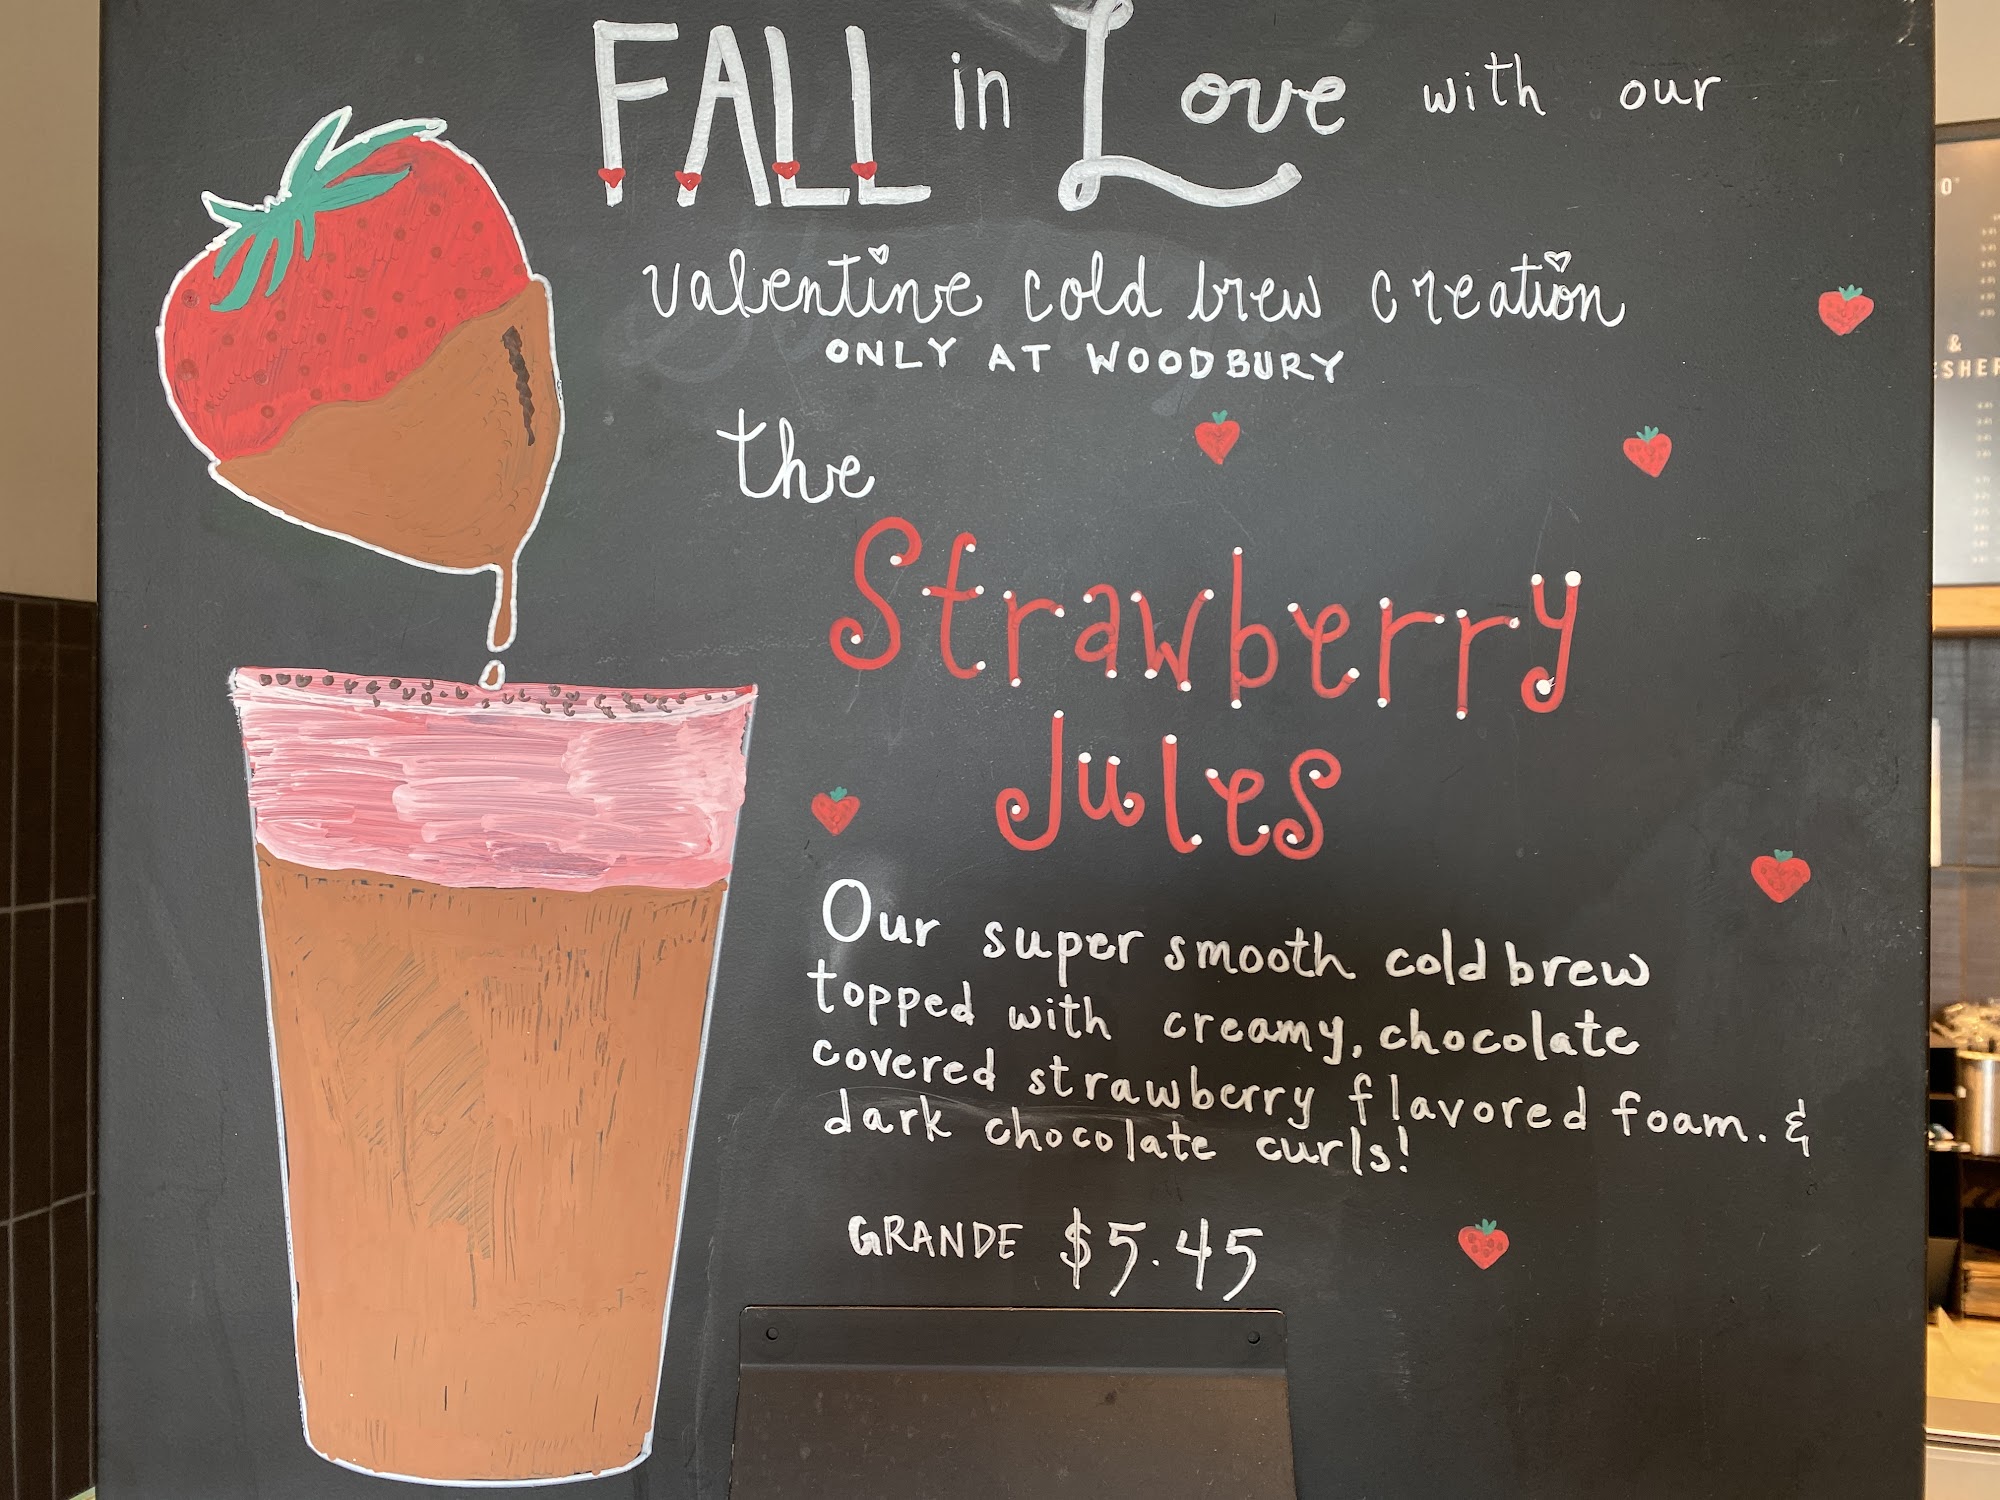 FALL in Love with our
valentine cold brew creation
ONLY AT WOODBURY
the
Strawberry
Jules
Our super smooth cold brew
topped with creamy, chocolate
covered strawberry flavored foam. &
dark chocolate curls!
GRANDE $5.45
&